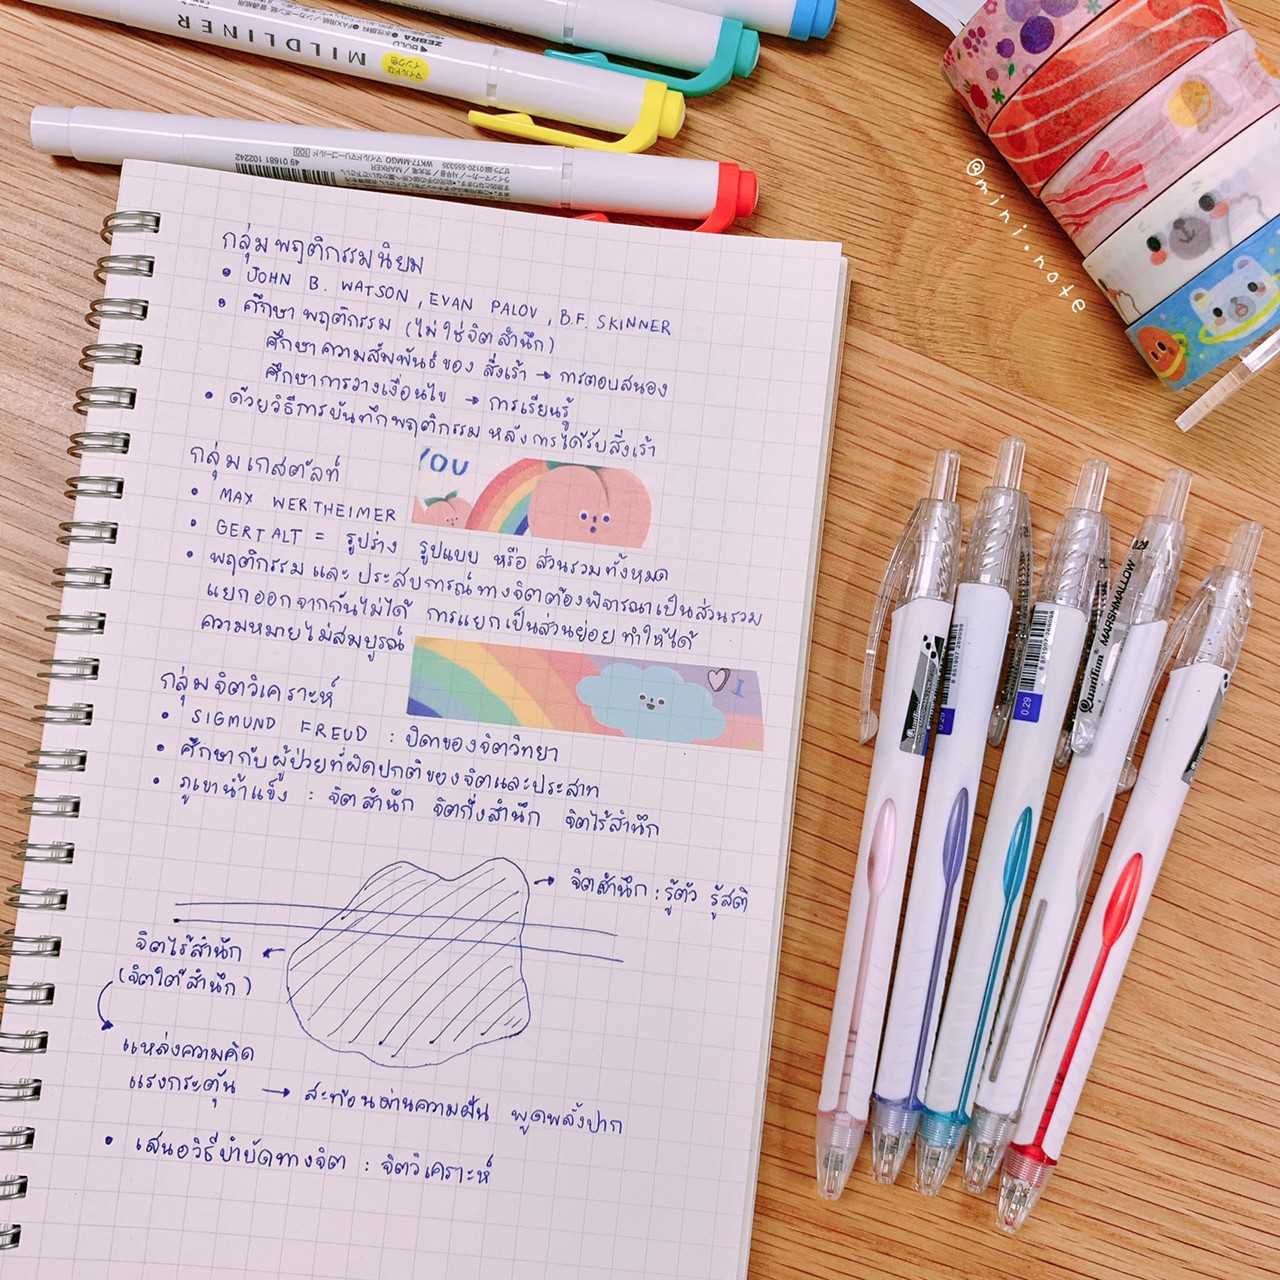 MILDLINER
ZEBRA
49 01681 102242
WKT7-MMGO マイルドマリーゴールド
@mini.note
กลุ่มพฤติกรรมนิยม
• JOHN B. WATSON, EVAN PALOV, B.F. SKINNER
• ศึกษาพฤติกรรม (ไม่ใช่จิตสำนึก)
ศึกษาความสัมพันธ์ของ สิ่งเร้า → การตอบสนอง
ศึกษาการวางเงื่อนไข → การเรียนรู้
• ด้วยวิธีการบันทึกพฤติกรรม หลังการได้รับสิ่งเร้า
กลุ่มเกสตัลท์
YOU
• MAX WERTHEIMER
• GERTALT = รูปร่าง รูปแบบ หรือ ส่วนรวมทั้งหมด
• พฤติกรรมและ ประสบการณ์ทางจิตต้องพิจารณาเป็นส่วนรวม
แยกออกจากกันไม่ได้ การแยกเป็นส่วนย่อย ทำให้ได้
ความหมายไม่สมบูรณ์
I
กลุ่มจิตวิเคราะห์
• SIGMUND FREUD : บิดาของจิตวิทยา
• ศึกษากับผู้ป่วยที่ผิดปกติของจิตและประสาท
• ภูเขาน้ำแข็ง : จิตสำนึก จิตกึ่งสำนึก จิตไร้สำนึก
→ จิตสำนึก : รู้ตัว รู้สติ
จิตไร้สำนึก
(จิตใต้สำนึก)
แหล่งความคิด
แรงกระตุ้น → สะท้อนผ่านความฝัน พูดพลั้งปาก
• เสนอวิธีบำบัดทางจิต : จิตวิเคราะห์
Quantum MARSHMALLOW 0.29
0.29
0.29